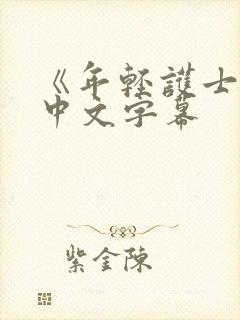 《年輕護士
中文字幕
紫金陳